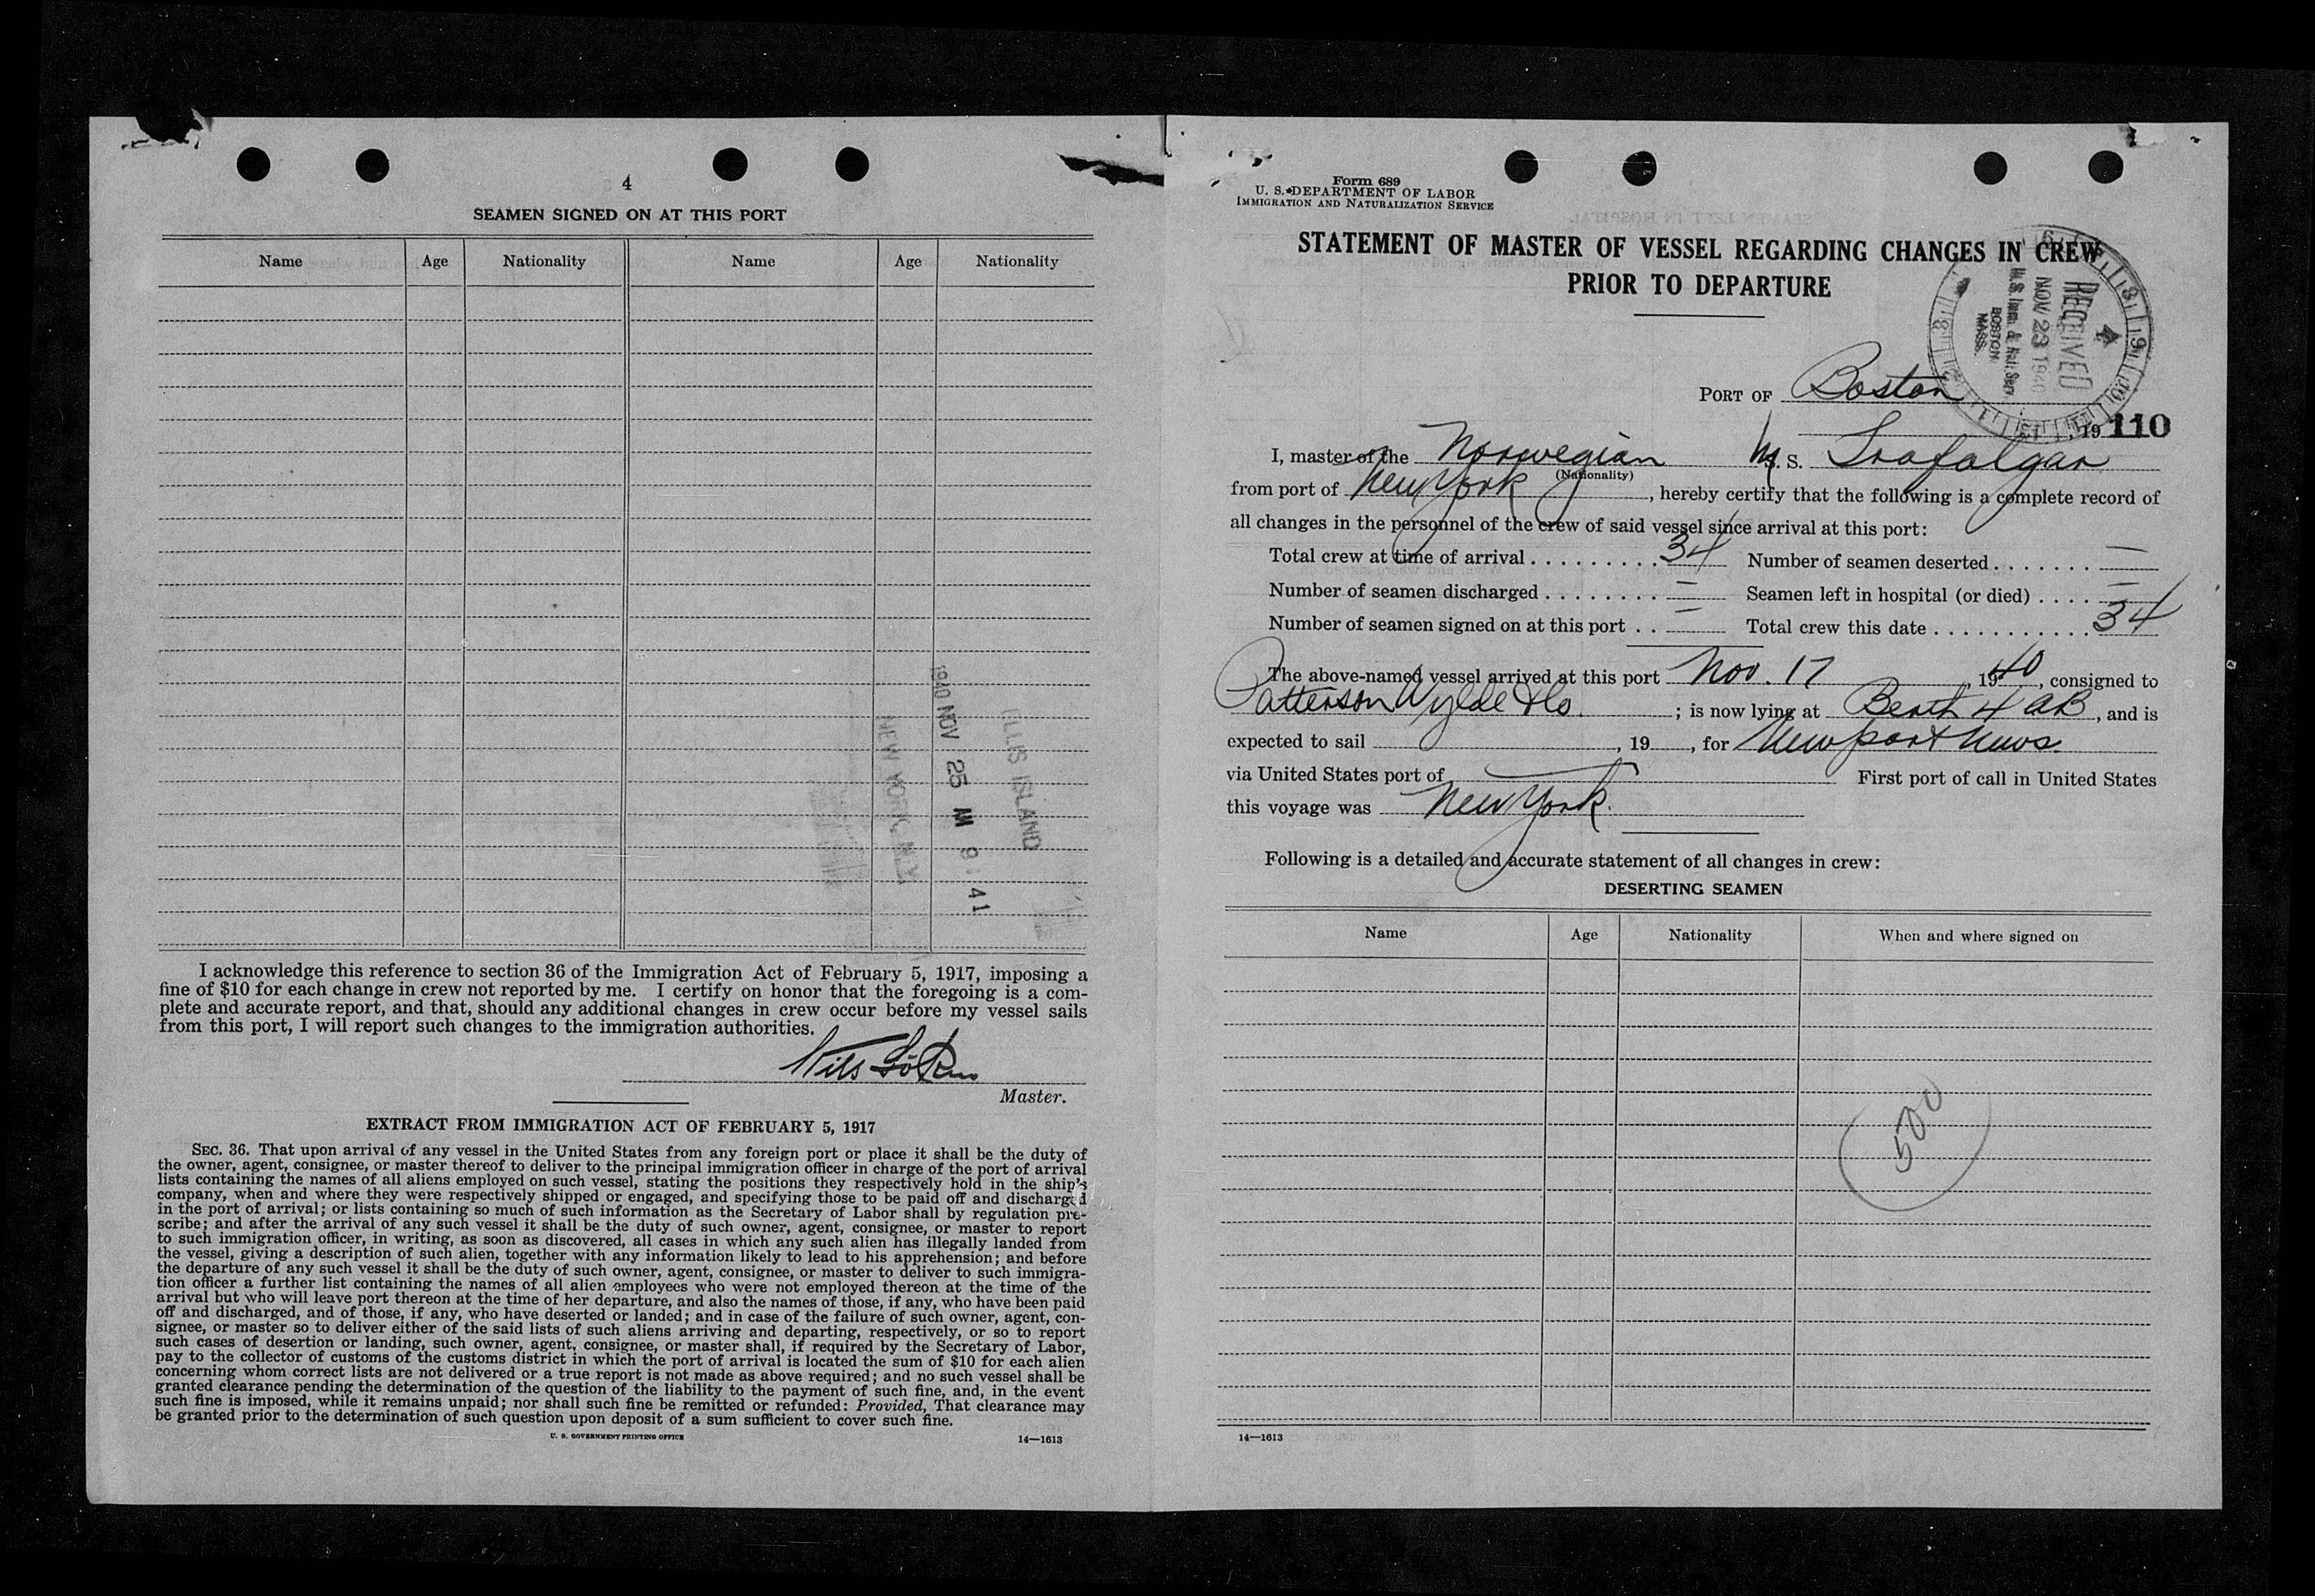 4
SEAMEN SIGNED ON AT THIS PORT
Name Age Nationality Name Age Nationality
ELLIS ISLAND
1940 NOV 25 M 9 41
NEW YORK, N.Y.
I acknowledge this reference to section 36 of the Immigration Act of February 5, 1917, imposing a
fine of $10 for each change in crew not reported by me. I certify on honor that the foregoing is a com-
plete and accurate report, and that, should any additional changes in crew occur before my vessel sails
from this port, I will report such changes to the immigration authorities.
Nils
Master.
EXTRACT FROM IMMIGRATION ACT OF FEBRUARY 5, 1917
SEC. 36. That upon arrival of any vessel in the United States from any foreign port or place it shall be the duty of
the owner, agent, consignee, or master thereof to deliver to the principal immigration officer in charge of the port of arrival
lists containing the names of all aliens employed on such vessel, stating the positions they respectively hold in the ship's
company, when and where they were respectively shipped or engaged, and specifying those to be paid off and discharged
in the port of arrival; or lists containing so much of such information as the Secretary of Labor shall by regulation pre-
scribe; and after the arrival of any such vessel it shall be the duty of such owner, agent, consignee, or master to report
to such immigration officer, in writing, as soon as discovered, all cases in which any such alien has illegally landed from
the vessel, giving a description of such alien, together with any information likely to lead to his apprehension; and before
the departure of any such vessel it shall be the duty of such owner, agent, consignee, or master to deliver to such immigra-
tion officer a further list containing the names of all alien employees who were not employed thereon at the time of the
arrival but who will leave port thereon at the time of her departure, and also the names of those, if any, who have been paid
off and discharged, and of those, if any, who have deserted or landed; and in case of the failure of such owner, agent, con-
signee, or master so to deliver either of the said lists of such aliens arriving and departing, respectively, or so to report
such cases of desertion or landing, such owner, agent, consignee, or master shall, if required by the Secretary of Labor,
pay to the collector of customs of the customs district in which the port of arrival is located the sum of $10 for each alien
concerning whom correct lists are not delivered or a true report is not made as above required; and no such vessel shall be
granted clearance pending the determination of the question of the liability to the payment of such fine, and, in the event
such fine is imposed, while it remains unpaid; nor shall such fine be remitted or refunded: Provided, That clearance may
be granted prior to the determination of such question upon deposit of a sum sufficient to cover such fine.
U. S. GOVERNMENT PRINTING OFFICE 14—1613
Form 689
U. S. DEPARTMENT OF LABOR
IMMIGRATION AND NATURALIZATION SERVICE
STATEMENT OF MASTER OF VESSEL REGARDING CHANGES IN CREW
PRIOR TO DEPARTURE
RECEIVED
NOV 23 1940
U.S. Imm. & Nat. Serv.
BOSTON
MASS.
PORT OF Boston
, 19 110
I, master of the Norwegian M. S. Trafalgar
(Nationality)
from port of New York, hereby certify that the following is a complete record of
all changes in the personnel of the crew of said vessel since arrival at this port:
Total crew at time of arrival . . . . . . . . . 34 Number of seamen deserted . . . . . . . —
Number of seamen discharged . . . . . . . . — Seamen left in hospital (or died) . . . . —
Number of seamen signed on at this port . . — Total crew this date . . . . . . . . . . . 34
The above-named vessel arrived at this port Nov. 17, 1940, consigned to
Patterson Wylde & Co. ; is now lying at Berth 4 AB, and is
expected to sail , 19 , for Newport News.
via United States port of — First port of call in United States
this voyage was New York.
Following is a detailed and accurate statement of all changes in crew:
DESERTING SEAMEN
Name Age Nationality When and where signed on
500
14—1613